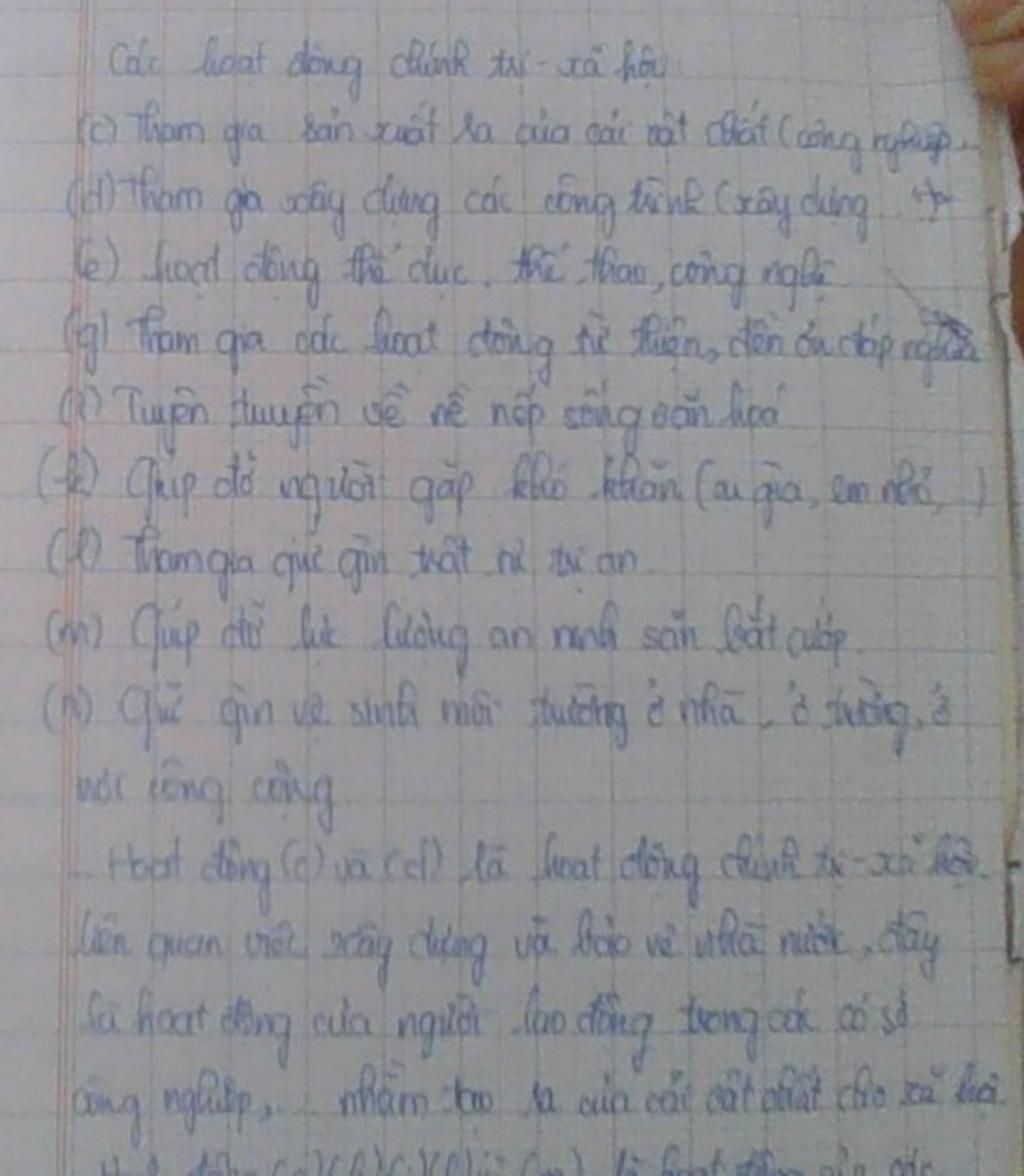 Các hoạt động chính trị - xã hội
(c) Tham gia sản xuất ra của cải vật chất (công nghiệp...
(d) Tham gia xây dựng các công trình (xây dựng
(e) hoạt động thể dục, thể thao, công nghệ
(g) Tham gia các hoạt động từ thiện, đền ơn đáp nghĩa
(i) Tuyên truyền về nề nếp sống văn hoá
(k) Giúp đỡ người gặp khó khăn (cụ già, em nhỏ, ...)
(l) Tham gia giữ gìn trật tự trị an
(m) Giúp đỡ lực lượng an ninh săn bắt cướp.
(n) Giữ gìn vệ sinh môi trường ở nhà, ở trường, ở
nơi công cộng
- Hoạt động (c) và (d) là hoạt động chính trị - xã hội.
liên quan việc xây dựng và bảo vệ nhà nước, đây
là hoạt động của người lao động trong các cơ sở
công nghiệp,... nhằm tạo ra của cải vật chất cho xã hội.